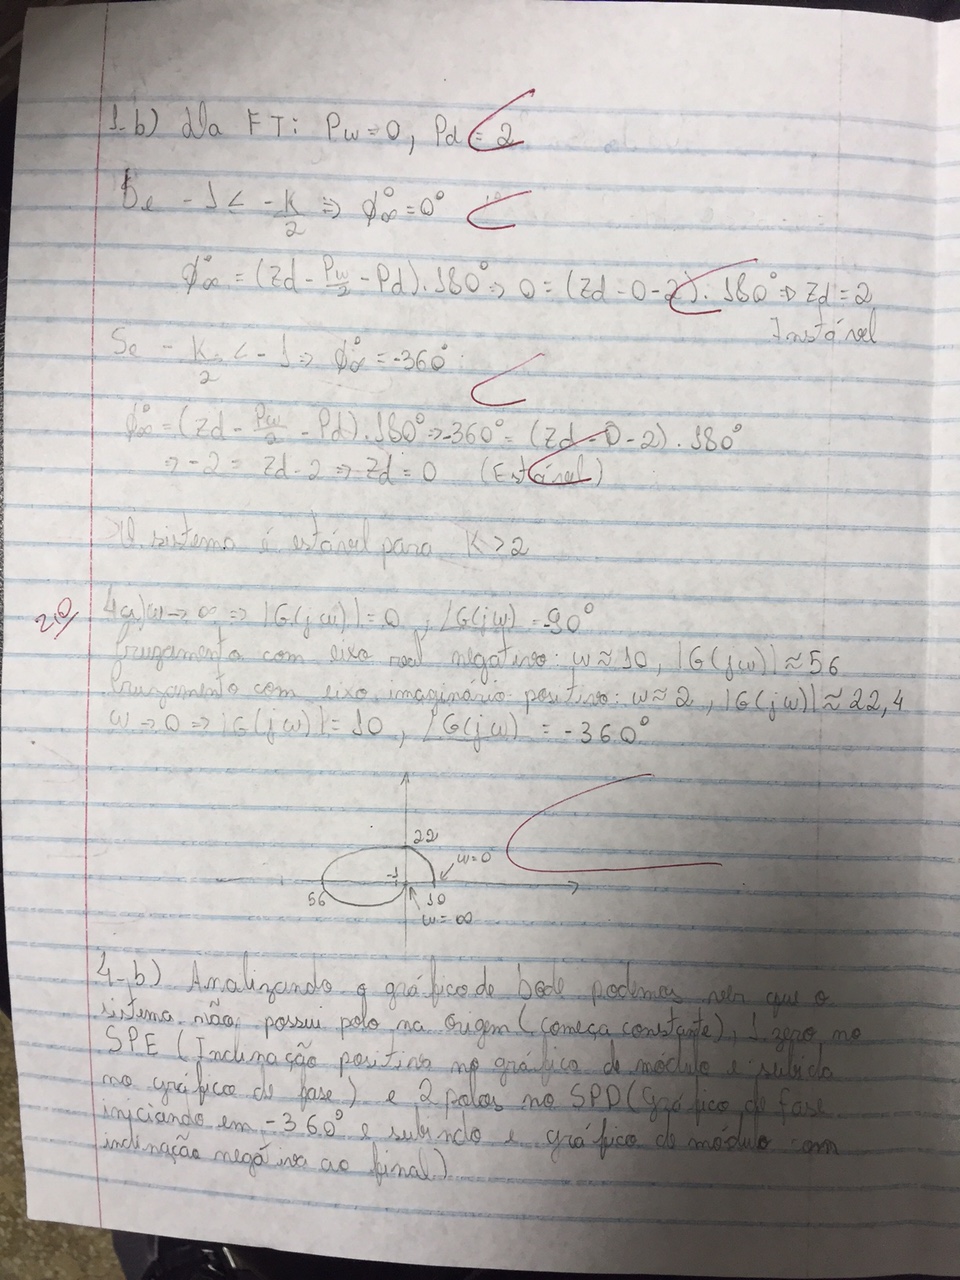 1-b) Da FT: Pw=0, Pd=2
Se -1 < -K/2 => φ∞° = 0°
φ∞° = (Zd - Pw/2 - Pd).180° => 0 = (Zd-0-2).180° => Zd=2
Instável
Se -K/2 < -1 => φ∞° = -360°
φ∞° = (Zd - Pw/2 - Pd).180° => -360° = (Zd-0-2).180°
=> -2 = Zd-2 => Zd=0 (Estável)
O sistema é estável para K>2
2,0
4a) w→∞ => |G(jw)|=0, ∠G(jw) = -90°
Cruzamento com eixo real negativo: w≈10, |G(jw)|≈56
Cruzamento com eixo imaginário positivo: w≈2, |G(jw)|≈22,4
w→0 => |G(jw)|=10, ∠G(jw) = -360°
22
w=0
-1
56
10
w=∞
4-b) Analizando o gráfico de bode podemos ver que o
sistema não possui polo na origem (começa constante), 1 zero no
SPE (Inclinação positiva no gráfico de módulo e subida
no gráfico de fase) e 2 polos no SPD (Gráfico de fase
iniciando em -360° e subindo e gráfico de módulo com
inclinação negativa ao final)